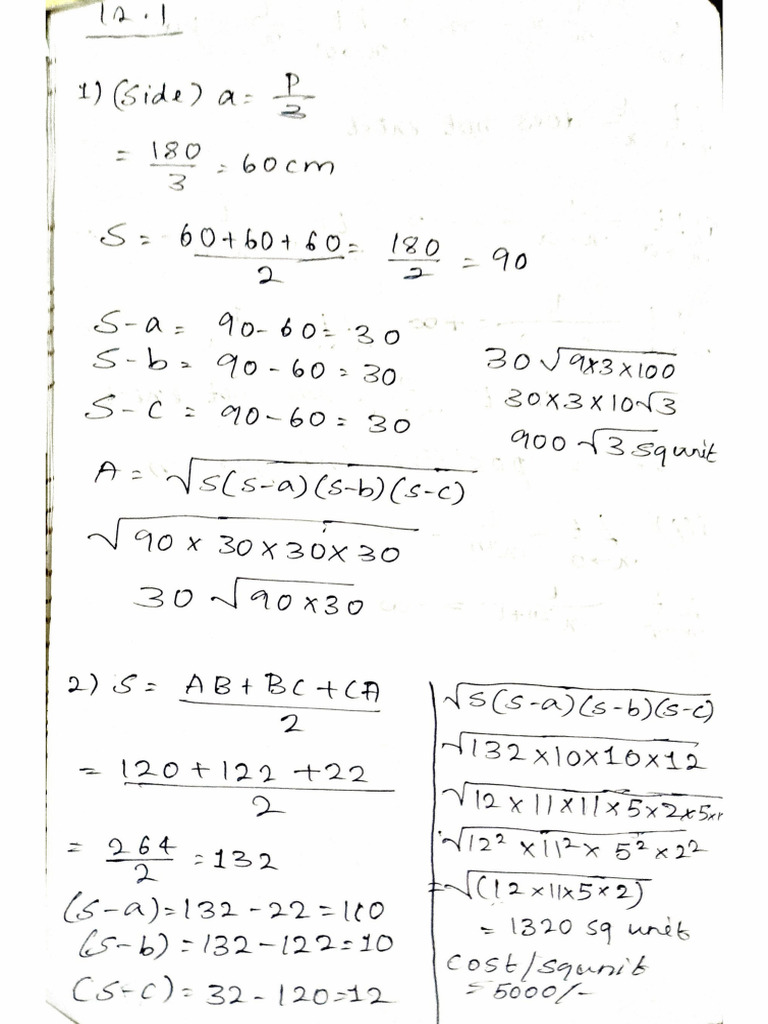 12.1
1) (Side) a = P/3
= 180/3 = 60cm
S = 60+60+60/2 = 180/2 = 90
S-a = 90-60 = 30
S-b = 90-60 = 30
S-c = 90-60 = 30
A = √s(s-a)(s-b)(s-c)
√90 × 30 × 30 × 30
30 √90×30
30 √9×3×100
30×3×10√3
900 √3 sq unit
2) S = AB + BC + CA/2
= 120 + 122 + 22/2
= 264/2 = 132
(s-a) = 132 - 22 = 110
(s-b) = 132 - 122 = 10
(s-c) = 32 - 120 = 12
√s(s-a)(s-b)(s-c)
√132 ×10×10×12
√12 × 11 × 11 × 5 × 2 × 5×
√12² × 11² × 5² × 2²
=√(12×11×5×2)
= 1320 sq unit
cost/squnit
= 5000/-